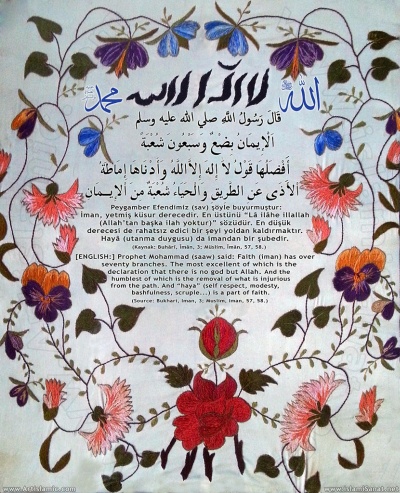 الله
محمد
قَالَ رَسُولُ اللَّهِ صلي الله عليه وسلم
اَلْإِيمَانُ بِضْعٌ وَسَبْعُونَ شُعْبَةً
أَفْضَلُهَا قَوْلُ لَا إِلهَ إِلاَّ اللَّهُ وَأَدْنَاهَا إِمَاطَةُ
الْأَذٰى عَنِ الطَّرِيقِ وَالْحَيَاءُ شُعْبَةٌ مِنَ الْاِيـمـانِ
Peygamber Efendimiz (sav) şöyle buyurmuştur:
İman, yetmiş küsur derecedir. En üstünü “Lâ ilâhe illallah
(Allah’tan başka ilah yoktur)” sözüdür. En düşük
derecesi de rahatsız edici bir şeyi yoldan kaldırmaktır.
Hayâ (utanma duygusu) da imandan bir şubedir.
(Kaynak: Buhârî, Îmân, 3; Müslim, Îmân, 57, 58.)
[ENGLISH:] Prophet Mohammed (saaw) said: Faith (iman) has over
seventy branches. The most excellent of which is the
declaration that there is no god but Allah. And the
humblest of which is the removal of what is injurious
from the path. And “haya” (self respect, modesty,
bashfulness, scruple...) is a part of faith.
(Source: Bukhari, Iman, 3; Muslim, Iman, 57, 58.)
www.ArtIslamic.com
www.IslamiSanat.net